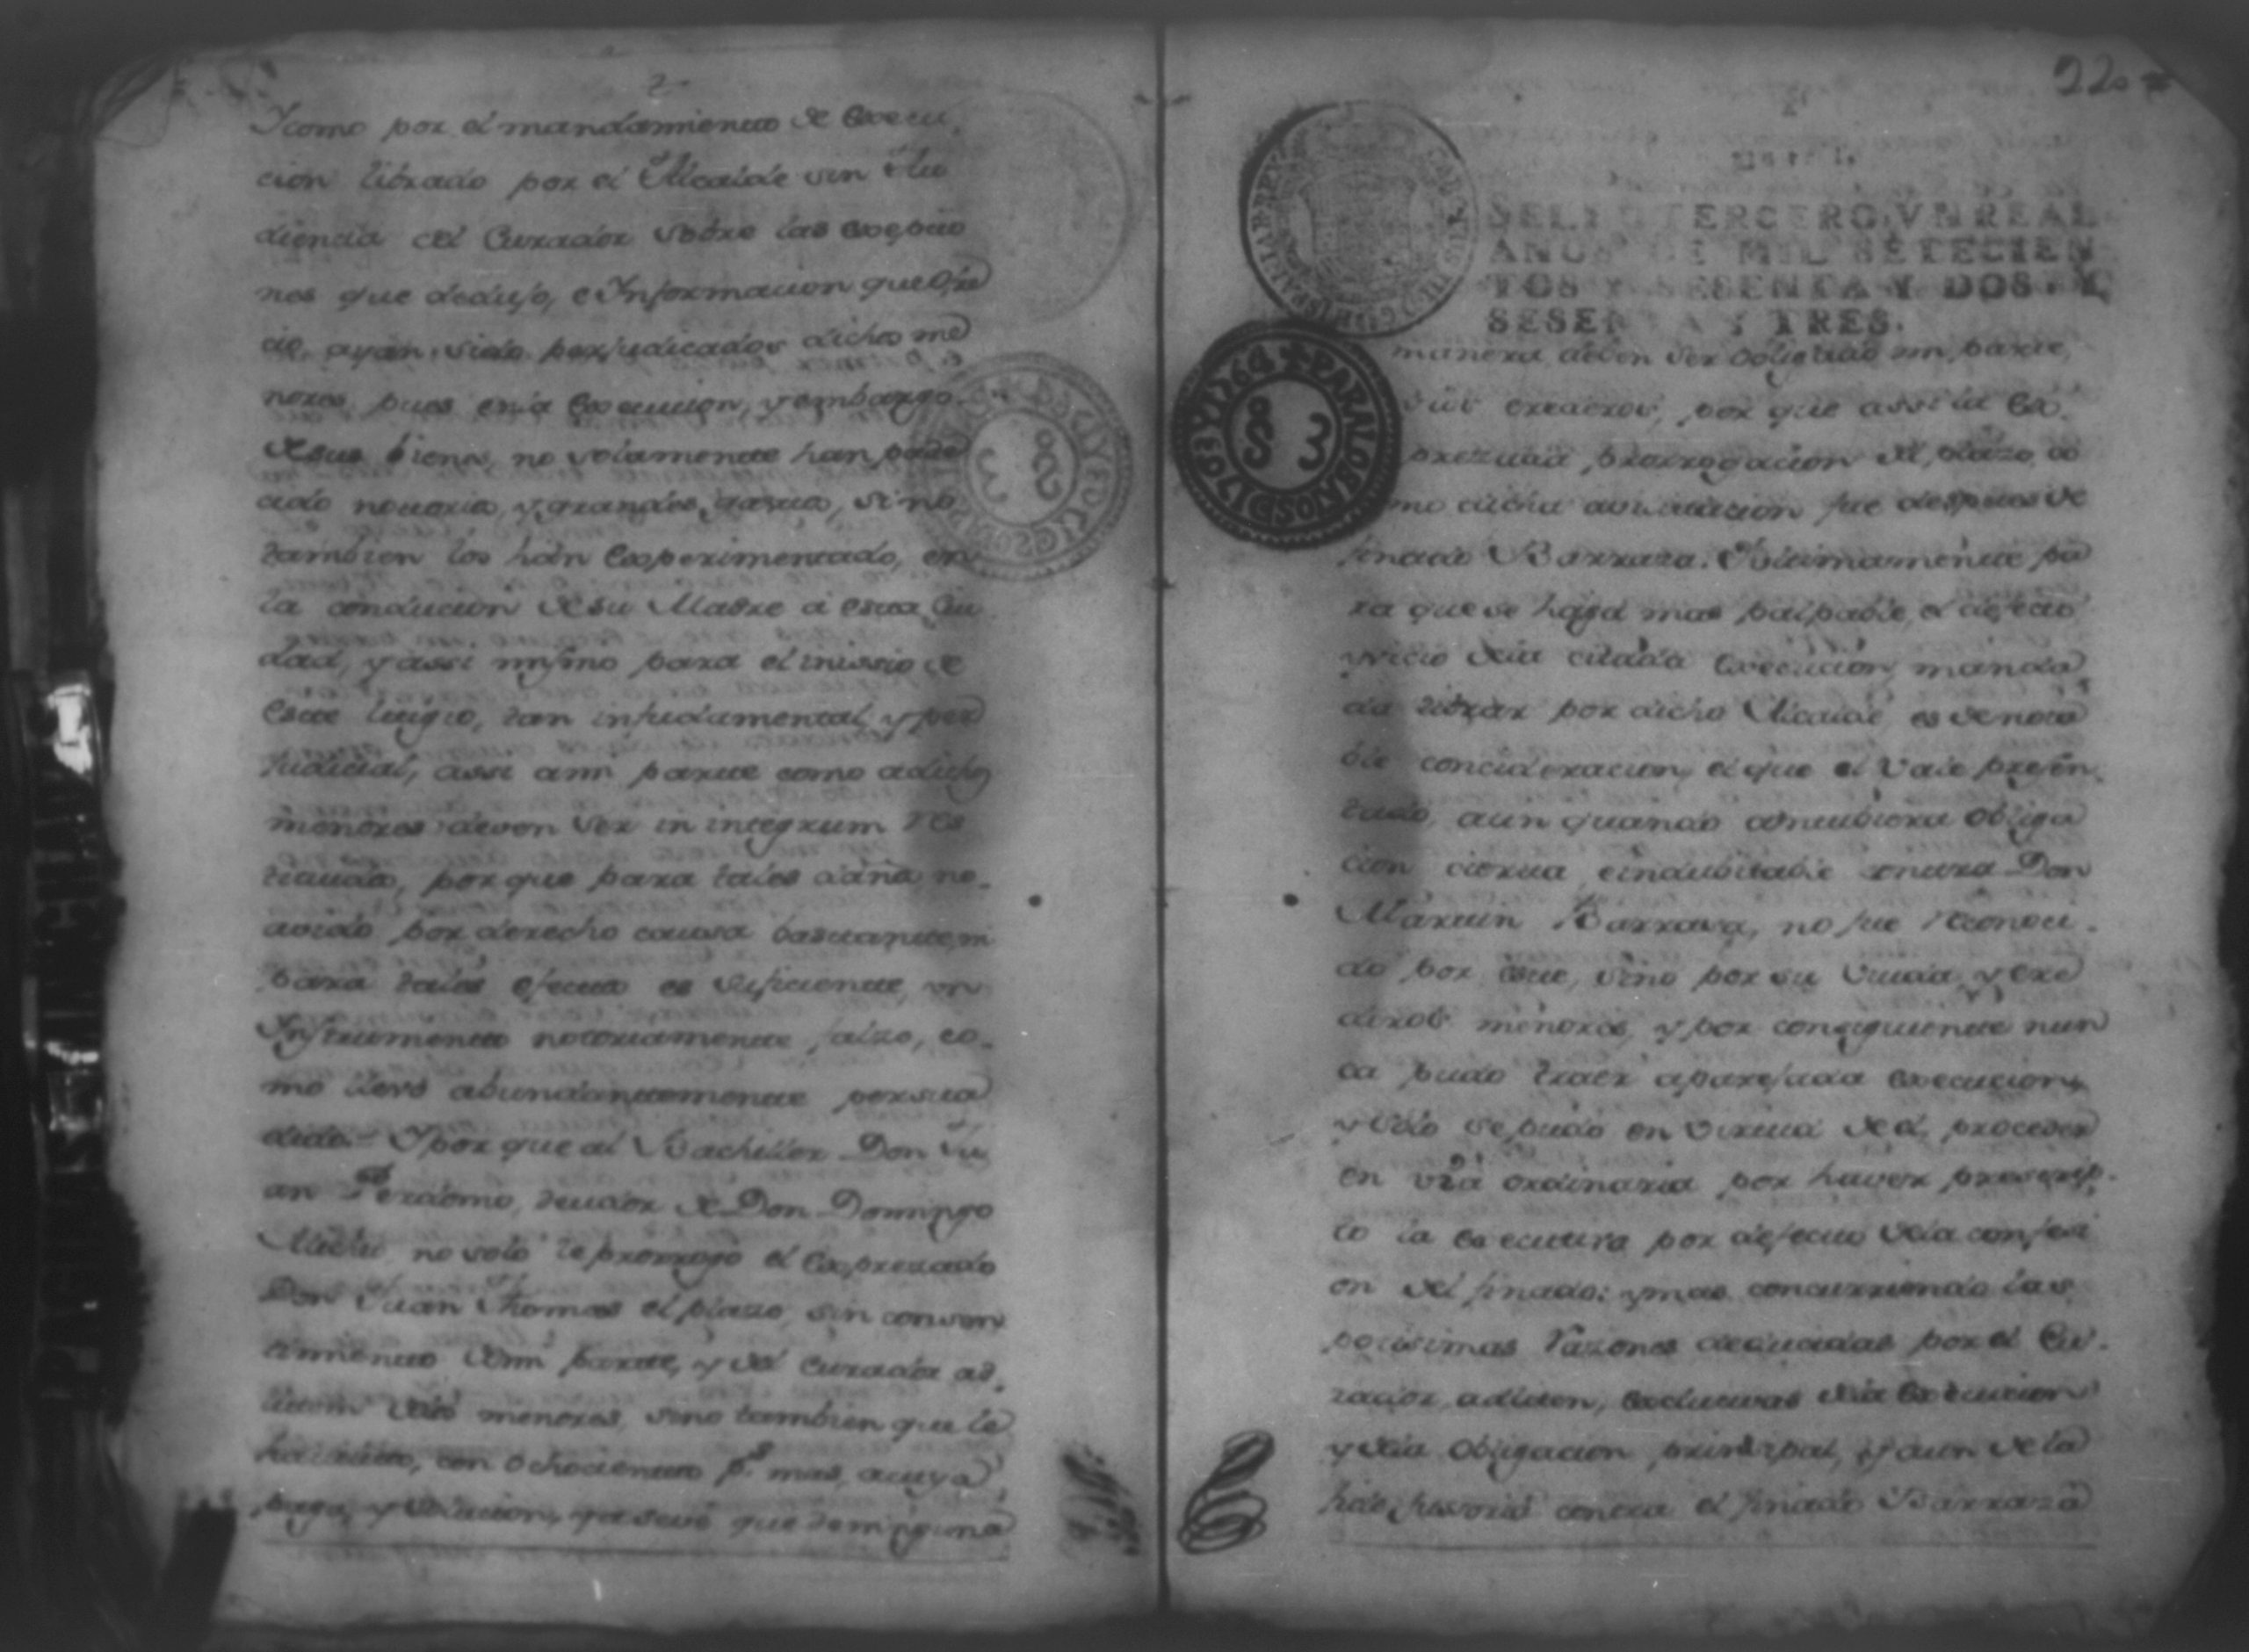 Y como por el mandamiento de Execu-
cion librado por el Alcalde sin Au
diencia del Curador sobre las excepcio
nes que dedujo, e Informacion que Ofre
cio, ayan sido perjudicados dichos me
nores, pues en la Execucion, y embargo
de sus bienes, no solamente han pade
cido notorios, y grandes gastos, sino
tambien los hán Experimentado, en
la conducion de su Madre a esta Ciu
dad, y assi mismo para el inissio de
Este Litigio, tan infudamental, y per
judicial, assi a mi parte como a dichos
menores deven ser in integrum res
tituidos, por que para tales daños no-
avido por derecho causa bastante, ni
para tales efectos es suficiente, un
Instrumento notoriamente falzo, co-
mo llevo abundantemente persua
dido. = Y por que al Bachiller Don Ju
an Perdomo, deudor de Don Domingo
no solo le prorrogó el Expresado
Don Juan Thomas el plazo, sin consen
timiento de mi parte, y del Curador ad
litem de los menores, sino tambien que le
con Ochocientos p.s mas, a cuya
paga, y solucion, ya se vé que de ninguna
220
SELLO TERCERO, VN REAL
AÑOS DE MIL SETECIEN
TOS Y SESENTA Y DOS, Y
SESENTA Y TRES.
PARA LOS AÑOS DE 1764 Y
8 S 3
manera deven ser obligados mi parte,
sus por que assi la Ex
presada prorrogacion del plazo, co
mo dicha fue despues de
finado Barraza. Ultimamente pa
ra que se haga mas palpable, el defecto
y vicio de la citada Execucion, manda
da librar por dicho Alcalde, es de nota
ble concideracion, el que el Vale presen
tado, aun quando contubiera Obliga
cion cierta, e indubitable contra Don
Martin Barrasa, no fue reconoci-
do por este, sino por su Viuda, y ere
deros menores, y por consiguiente nun
ca pudo traer aparejada Execucion,
y solo se pudo en virtud de el, proceder
en via ordinaria por haver prescrip-
to la executiva por defecto de la confesi
on del finado: y mas concurriendo las
potisimas razones deducidas por el Cu-
rador adlitem, exclucivas de la Execucion
y de la Obligacion prinzipal, y aun de la
contra el finado Barraza